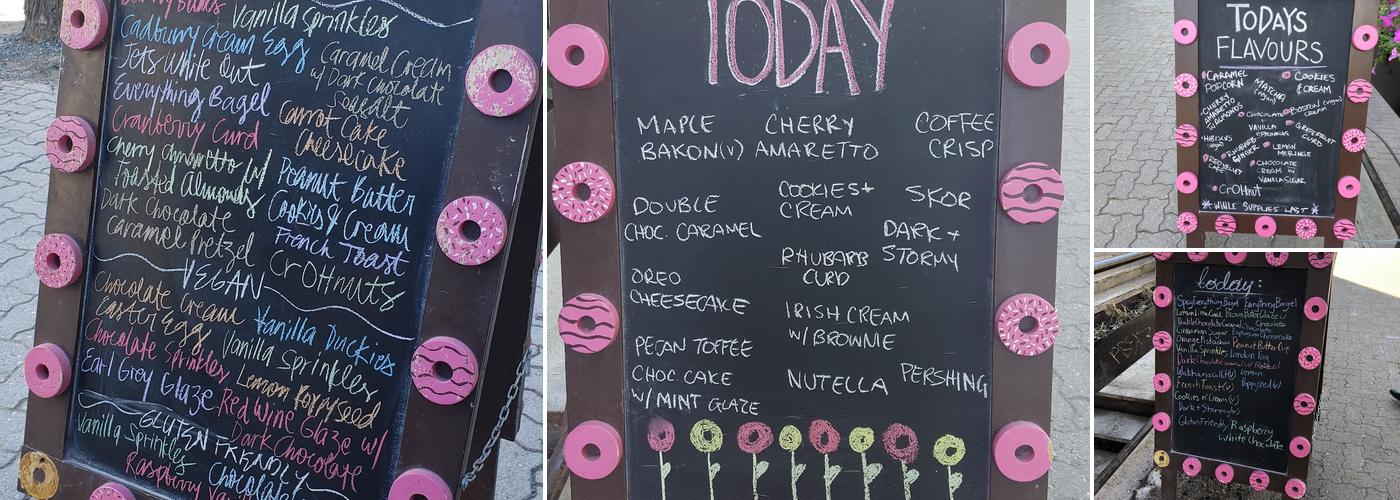 Vanilla Sprinkles
Cadburry Cream Egg
Jets White Out
Everything Bagel
Cranberry Curd
Cherry Amaretto w/
Toasted Almonds
Dark Chocolate
Caramel Pretzel
Caramel Cream
w/ Dark Chocolate
Seasalt
Carrot Cake
Cheesecake
Peanut Butter
Cookies & Cream
French Toast
CrOHnuts
VEGAN
Chocolate Cream
Easter Egg
Chocolate Sprinkles
Earl Grey Glaze
Vanilla Duckies
Vanilla Sprinkles
Lemon Poppyseed
Red Wine Glaze w/
Dark Chocolate
GLUTEN FRIENDLY
Vanilla Sprinkles
Raspberry
Chocolate
TODAY
MAPLE
BAKON(V)
DOUBLE
CHOC. CARAMEL
OREO
CHEESECAKE
PEJAN TOFFEE
CHOC. CAKE
W/ MINT GLAZE
CHERRY
AMARETTO
COOKIES+
CREAM
RHUBARB
CURD
IRISH CREAM
W/BROWNIE
NUTELLA
COFFEE
CRISP
SKOR
DARK +
STORMY
PERSHING
TODAYS
FLAVOURS
CARAMEL
POPCORN
CHERRY
AMARETTO
W/ALMONDS
HIBISCUS
(vegan)
MATCHA
(vegan)
CHOCOLATE
+
VANILLA
SPRINKLE
RHUBARB
GINGER
COOKIES
& CREAM
BOSTON (vegan)
CREAM
GRAPEFRUIT
CURD
LEMON
MERINGE
CHOCOLATE
CREAM W/
VANILLA SUGAR
CrOHnut
* WHILE SUPPLIES LAST *
today:
Everything Bagel
Lemon Lime Curd
Brown Butter Glaze
Double Chocolate Caramel
Cinnamon Sugar
Orange Pistachio
Peanut Butter Cup
Vanilla Sprinkles
London Fog
French Toast (v)
Lemon
Poppyseed (v)
Cookies n' Cream (v)
Dark + Stormy (v)
Gluten Friendly
Raspberry
White Chocolate